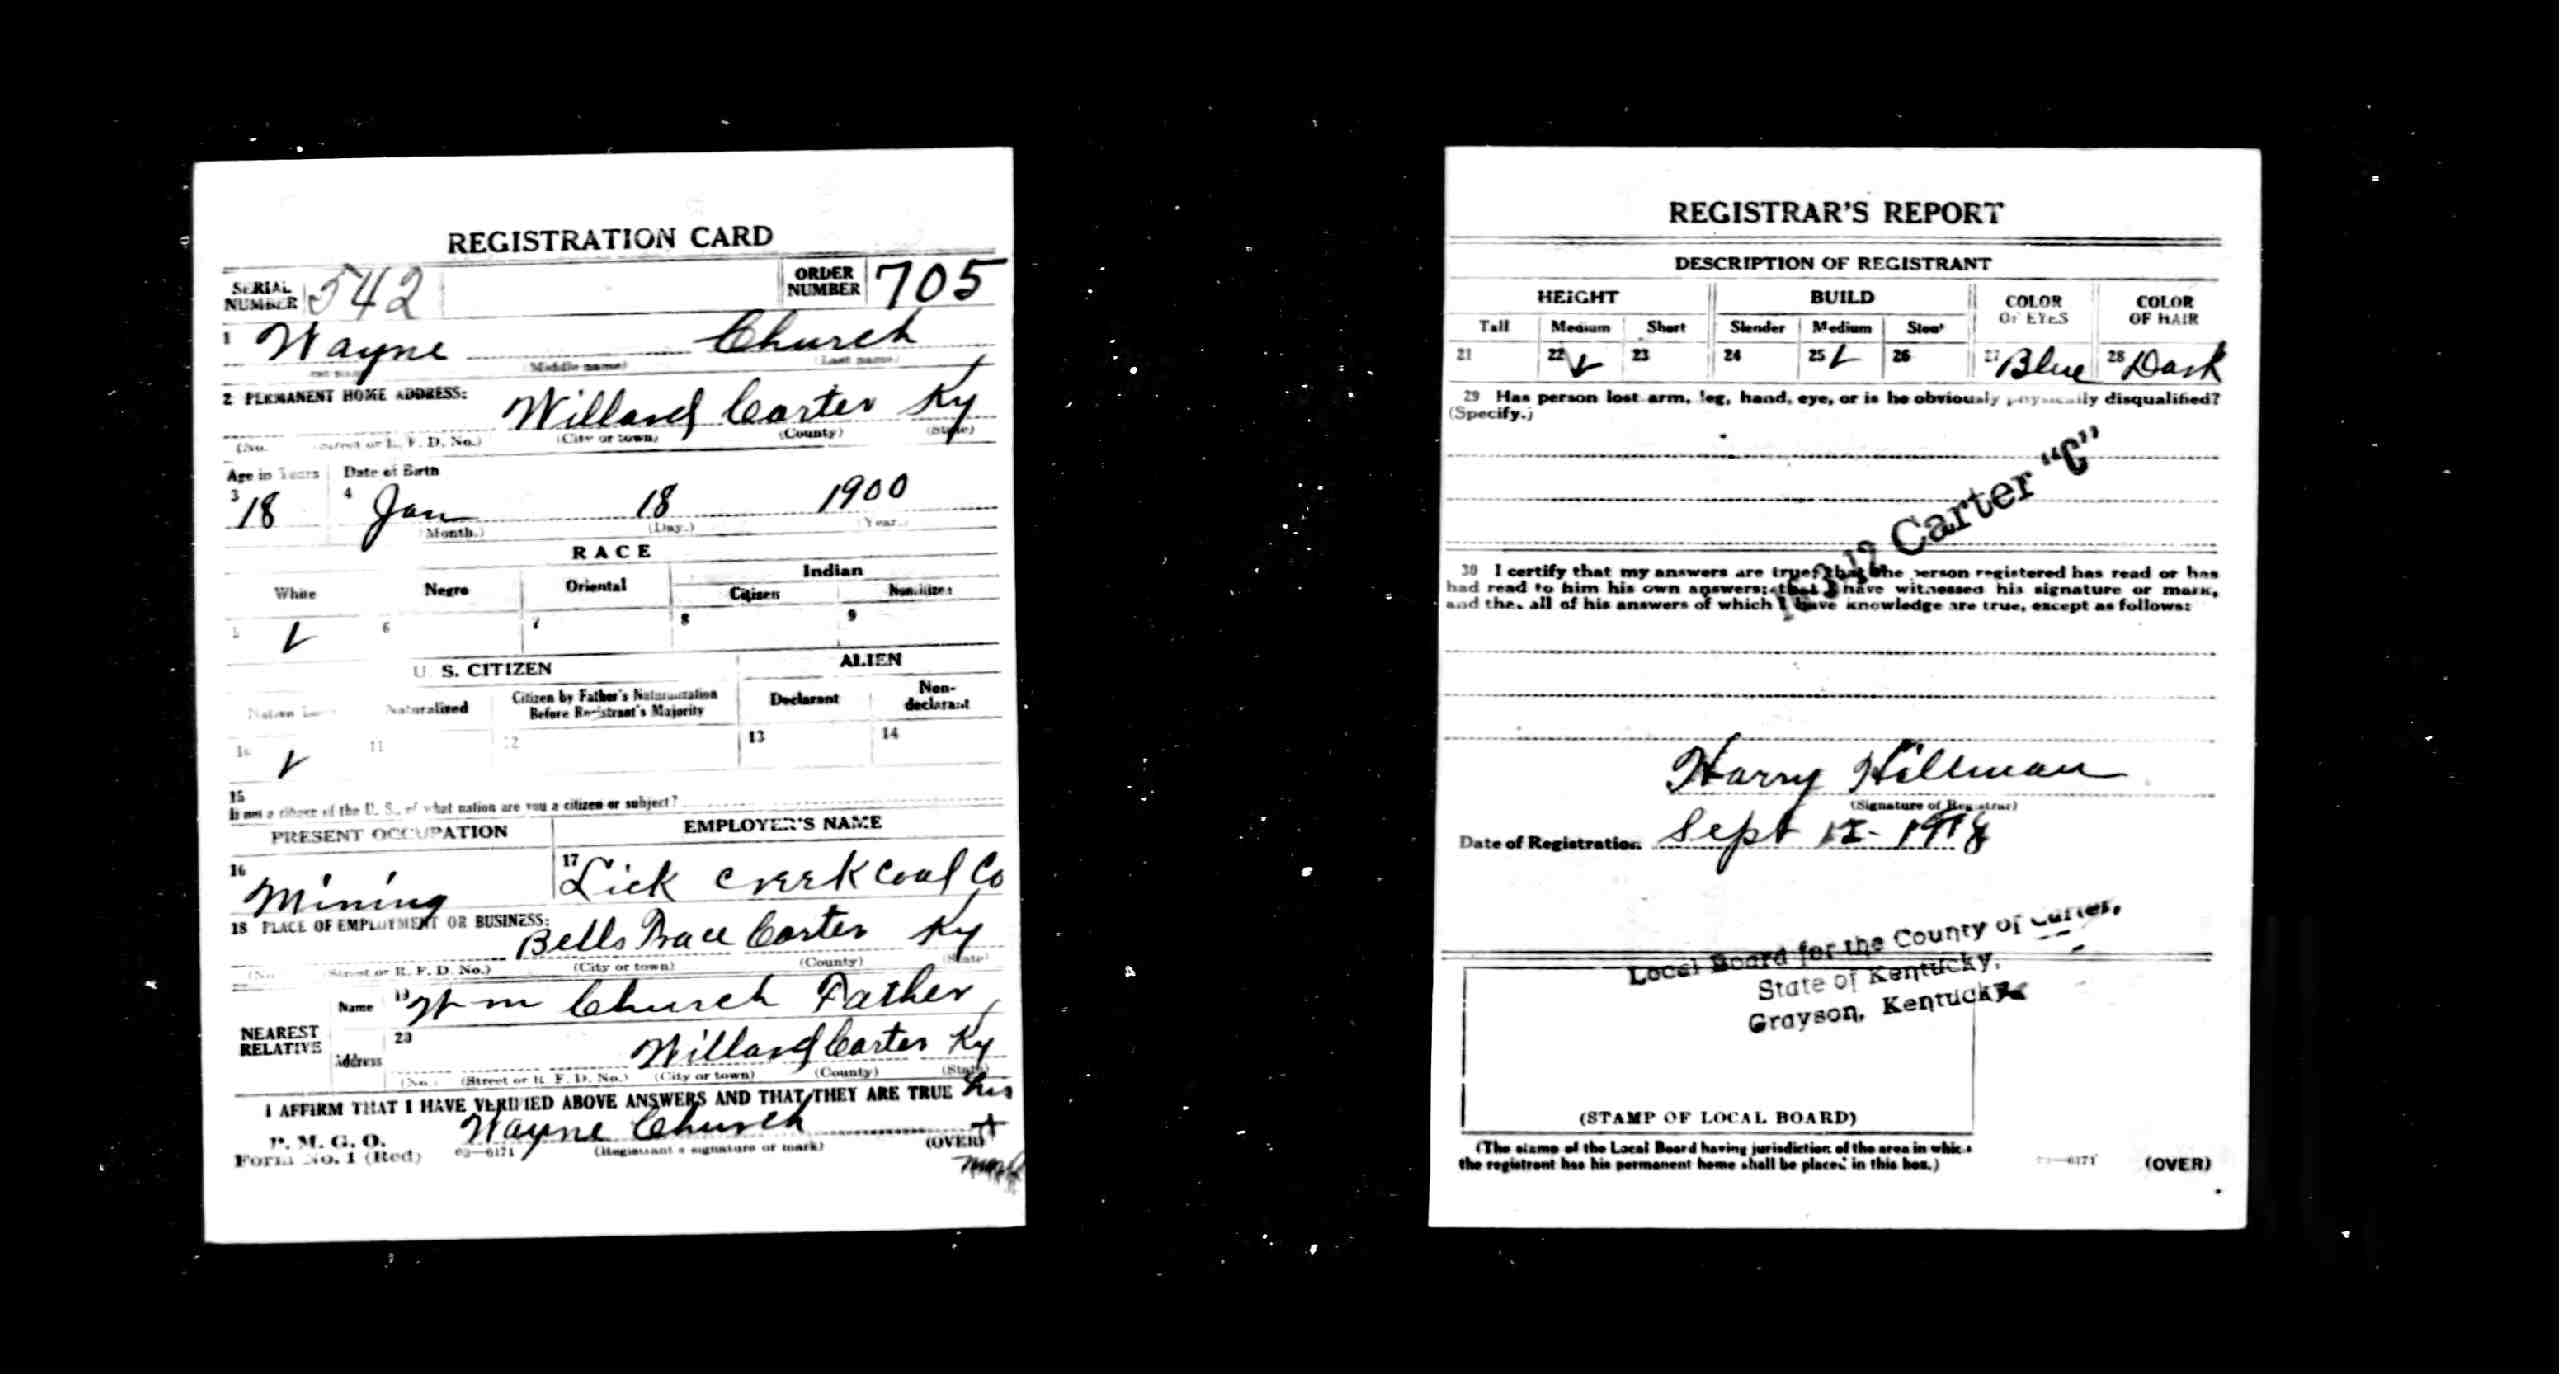 REGISTRATION CARD
SERIAL NUMBER 542 ORDER NUMBER 705
1 Wayne Church
(Middle name) (Last name)
2 PERMANENT HOME ADDRESS:
Willard Carter Ky
(No. (Street or R. F. D. No.) (City or town) (County) (State)
Age in Years Date of Birth
3 18 4 Jan 18 1900
(Month.) (Day.) (Year.)
RACE
White Negro Oriental Indian
Citizen Noncitizen
5 ✓ 6 7 8 9
U. S. CITIZEN ALIEN
Native Born Naturalized Citizen by Father's Naturalization Before Registrant's Majority Declarant Non-declarant
10 ✓ 11 12 13 14
15
If not a citizen of the U. S., of what nation are you a citizen or subject?
PRESENT OCCUPATION EMPLOYER'S NAME
16 Mining 17 Lick creek coal Co
18 PLACE OF EMPLOYMENT OR BUSINESS:
Bells Trace Carter Ky
(No. (Street or R. F. D. No.) (City or town) (County) (State)
NEAREST RELATIVE
Name 19 Wm Church Father
Address 20 Willard Carter Ky
(No.) (Street or R. F. D. No.) (City or town) (County) (State)
I AFFIRM THAT I HAVE VERIFIED ABOVE ANSWERS AND THAT THEY ARE TRUE his
P. M. G. O.
Form No. 1 (Red) Wayne Church
03—6171 (Registrant's signature or mark) (OVER)
mark
REGISTRAR'S REPORT
DESCRIPTION OF REGISTRANT
HEIGHT BUILD COLOR OF EYES COLOR OF HAIR
Tall Medium Short Slender Medium Stout
21 22 ✓ 23 24 25 ✓ 26 27 Blue 28 Dark
29 Has person lost arm, leg, hand, eye, or is he obviously physically disqualified?
(Specify.)
Carter "C"
30 I certify that my answers are true; that the person registered has read or has
had read to him his own answers; that I have witnessed his signature or mark,
and that all of his answers of which I have knowledge are true, except as follows:
Harry Hillman
(Signature of Registrar)
Date of Registration Sept 12- 1918
Local Board for the County of Carter,
State of Kentucky,
Grayson, Kentucky.
(STAMP OF LOCAL BOARD)
(The stamp of the Local Board having jurisdiction of the area in which
the registrant has his permanent home shall be placed in this box.)
03—6171 (OVER)